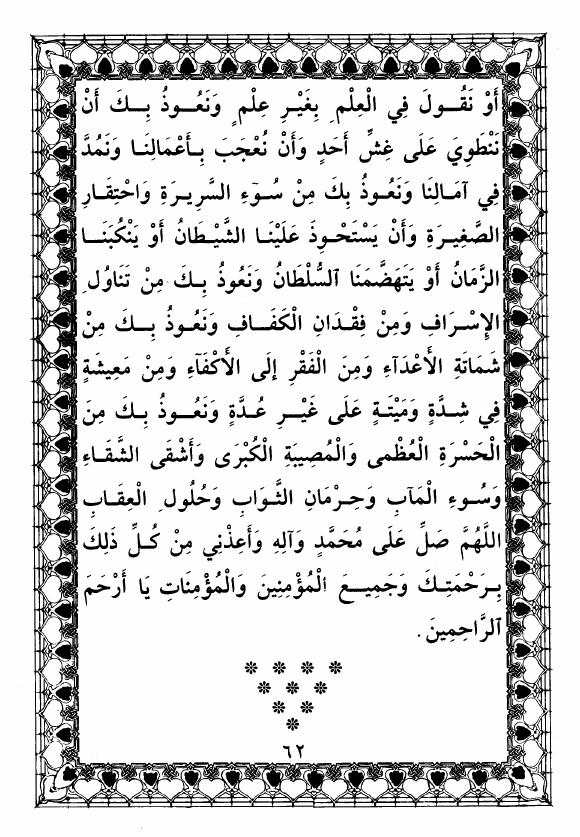 أَوْ نَقُولَ فِي الْعِلْمِ بِغَيْرِ عِلْمٍ وَنَعُوذُ بِكَ أَنْ
نَنْطَوِيَ عَلَى غِشِّ أَحَدٍ وَأَنْ نُعْجَبَ بِأَعْمَالِنَا وَنَمُدَّ
فِي آمَالِنَا وَنَعُوذُ بِكَ مِنْ سُوءِ السَّرِيرَةِ وَاحْتِقَارِ
الصَّغِيرَةِ وَأَنْ يَسْتَحْوِذَ عَلَيْنَا الشَّيْطَانُ أَوْ يَنْكُبَنَا
الزَّمَانُ أَوْ يَتَهَضَّمَنَا السُّلْطَانُ وَنَعُوذُ بِكَ مِنْ تَنَاوُلِ
الإِسْرَافِ وَمِنْ فِقْدَانِ الْكَفَافِ وَنَعُوذُ بِكَ مِنْ
شَمَاتَةِ الأَعْدَآءِ وَمِنَ الْفَقْرِ إِلَى الأَكْفَآءِ وَمِنْ مَعِيشَةٍ
فِي شِدَّةٍ وَمَيْتَةٍ عَلَى غَيْرِ عُدَّةٍ وَنَعُوذُ بِكَ مِنَ
الْحَسْرَةِ الْعُظْمَى وَالْمُصِيبَةِ الْكُبْرَى وَأَشْقَى الشَّقَاءِ
وَسُوءِ الْمَآبِ وَحِرْمَانِ الثَّوَابِ وَحُلُولِ الْعِقَابِ
اللَّهُمَّ صَلِّ عَلَى مُحَمَّدٍ وَآلِهِ وَأَعِذْنِي مِنْ كُلِّ ذَلِكَ
بِرَحْمَتِكَ وَجَمِيعَ الْمُؤْمِنِينَ وَالْمُؤْمِنَاتِ يَا أَرْحَمَ
الرَّاحِمِينَ.
٦٢